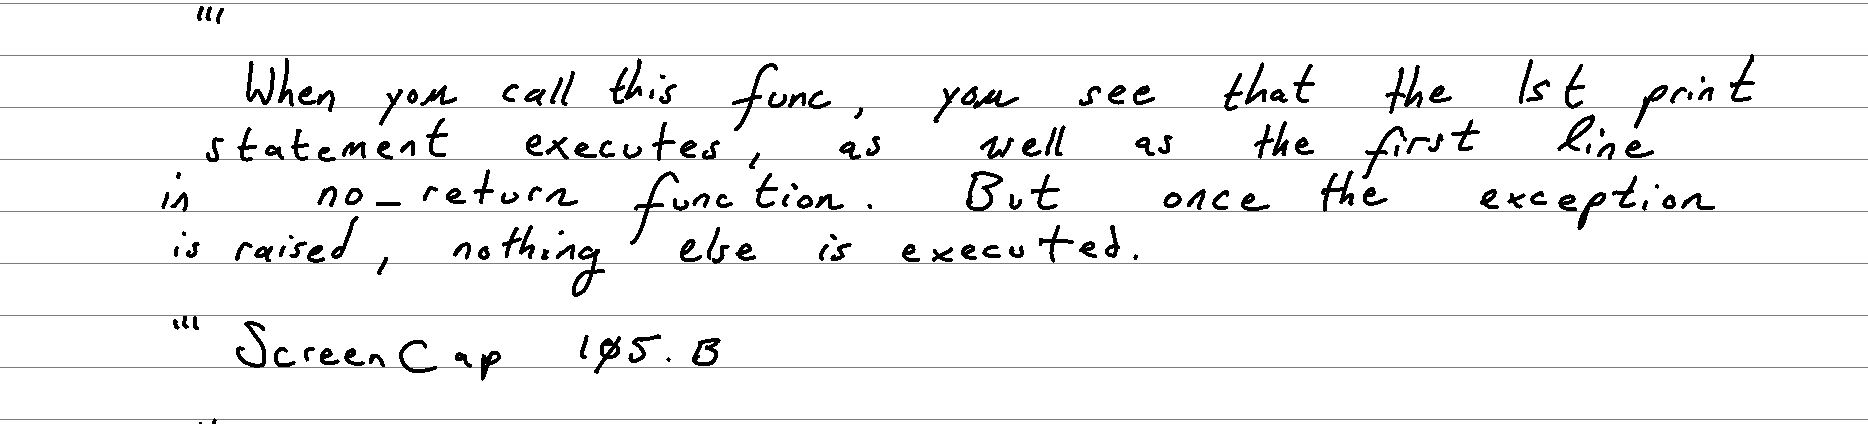 '''
When you call this func, you see that the 1st print
statement executes, as well as the first line
in no_return function. But once the exception
is raised, nothing else is executed.
''' ScreenCap 105.B